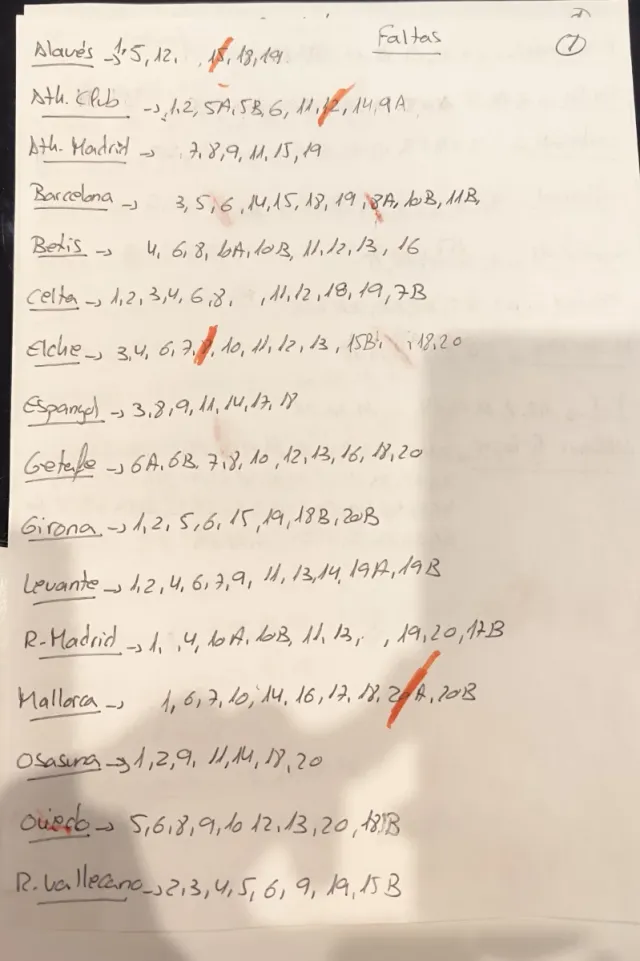 Faltas
1
Alavés → 1, 5, 12, 15, 18, 19
Ath. Club → 1, 2, 5A, 5B, 6, 11, 12, 14, 9A
Ath. Madrid → 7, 8, 9, 11, 15, 19
Barcelona → 3, 5, 6, 14, 15, 18, 19, 8A, 10B, 11B
Betis → 4, 6, 8, 10A, 10B, 11, 12, 13, 16
Celta → 1, 2, 3, 4, 6, 8, , 11, 12, 18, 19, 7B
Elche → 3, 4, 6, 7, 10, 11, 12, 13, 15B, 18, 20
Espanyol → 3, 8, 9, 11, 14, 17, 18
Getafe → 6A, 6B, 7, 8, 10, 12, 13, 16, 18, 20
Girona → 1, 2, 5, 6, 15, 19, 18B, 20B
Levante → 1, 2, 4, 6, 7, 9, 11, 13, 14, 19A, 19B
R. Madrid → 1, , 4, 10A, 10B, 11, 13, , 19, 20, 17B
Mallorca → 1, 6, 7, 10, 14, 16, 17, 18, 20A, 20B
Osasuna → 1, 2, 9, 11, 14, 18, 20
Oviedo → 5, 6, 8, 9, 10 12, 13, 20, 18B
R. Vallecano → 2, 3, 4, 5, 6, 9, 19, 15B